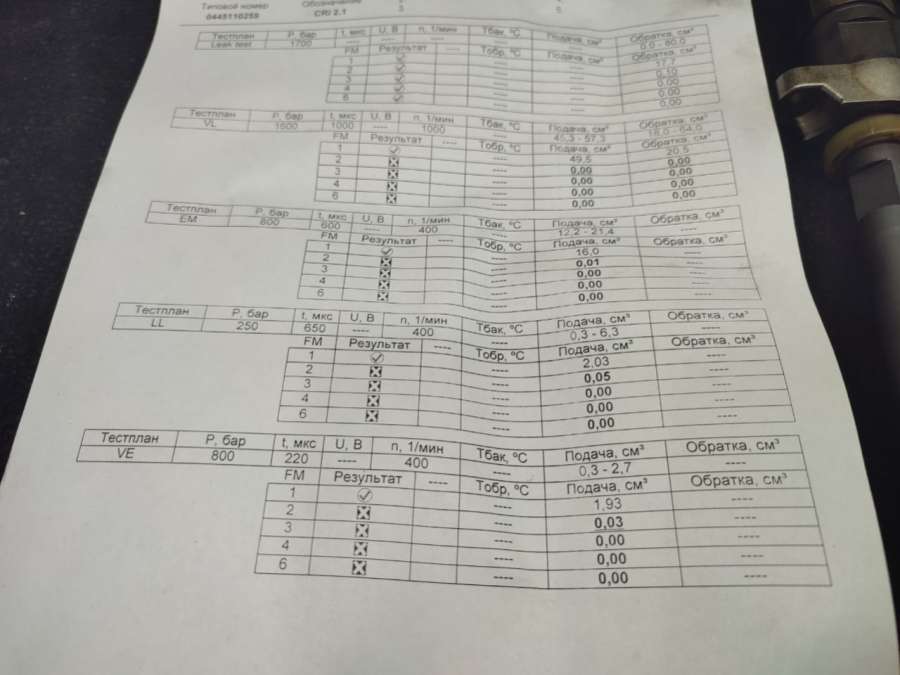 Типовой номер Обозначение
0445110259 CRI 2.1 3 6
Тестплан P, бар t, мкс U, В n, 1/мин Тбак, ºC Подача, см³ Обратка, см³
Leak test 1700 ---- ---- ---- ---- ---- 0,0 - 80,0
FM Результат ---- Тобр, ºC Подача, см³ Обратка, см³
1 ---- ---- 17,7
2 ---- ---- 0,10
3 ---- ---- 0,00
4 ---- ---- 0,00
6 ---- ---- 0,00
Тестплан P, бар t, мкс U, В n, 1/мин Тбак, ºC Подача, см³ Обратка, см³
VL 1600 1000 ---- 1000 ---- 45,3 - 57,3 16,0 - 64,0
FM Результат ---- Тобр, ºC Подача, см³ Обратка, см³
1 ---- 49,5 20,5
2 ---- 0,00 0,00
3 ---- 0,00 0,00
4 ---- 0,00 0,00
6 ---- 0,00 0,00
Тестплан P, бар t, мкс U, В n, 1/мин Тбак, ºC Подача, см³ Обратка, см³
EM 800 600 ---- 400 ---- 12,2 - 21,4 ----
FM Результат ---- Тобр, ºC Подача, см³ Обратка, см³
1 ---- 16,0 ----
2 ---- 0,01 ----
3 ---- 0,00 ----
4 ---- 0,00 ----
6 ---- 0,00 ----
Тестплан P, бар t, мкс U, В n, 1/мин Тбак, ºC Подача, см³ Обратка, см³
LL 250 650 ---- 400 ---- 0,3 - 6,3 ----
FM Результат ---- Тобр, ºC Подача, см³ Обратка, см³
1 ---- 2,03 ----
2 ---- 0,05 ----
3 ---- 0,00 ----
4 ---- 0,00 ----
6 ---- 0,00 ----
Тестплан P, бар t, мкс U, В n, 1/мин Тбак, ºC Подача, см³ Обратка, см³
VE 800 220 ---- 400 ---- 0,3 - 2,7 ----
FM Результат ---- Тобр, ºC Подача, см³ Обратка, см³
1 ---- 1,93 ----
2 ---- 0,03 ----
3 ---- 0,00 ----
4 ---- 0,00 ----
6 ---- 0,00 ----